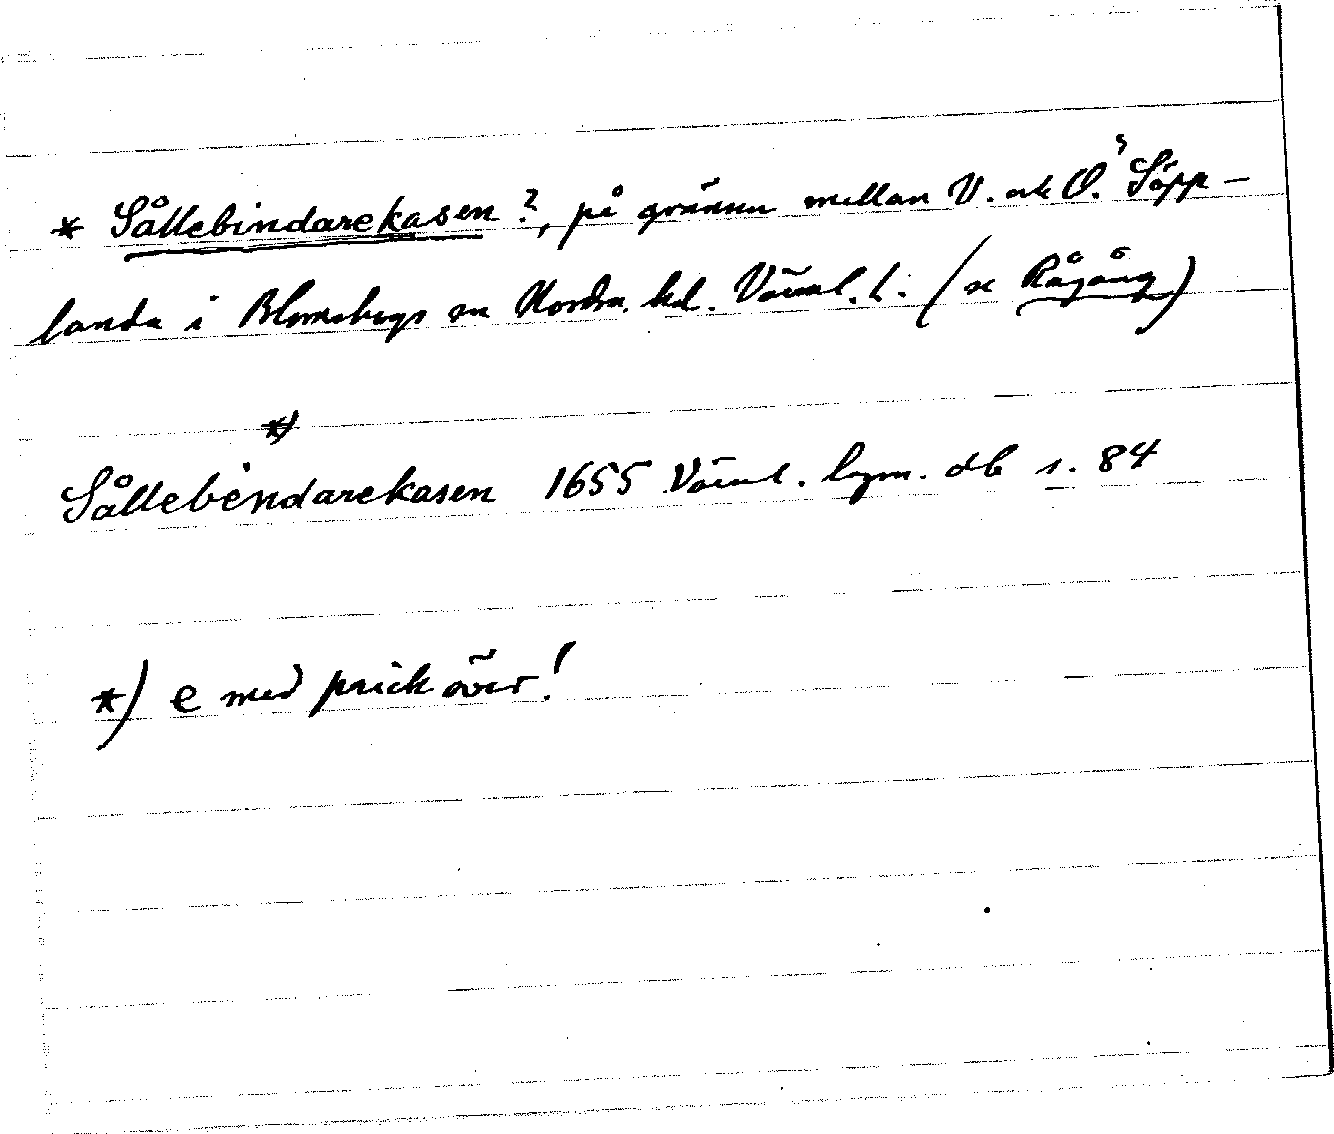 * Sållebindarekasen?, på gränsen mellan V. och Ö. Säpp-
landa i Blomskogs sn Nordm. hd. Värml. l. (se Rågång)
*)
Sållebėndarekasen 1655 Värml. lagm. db s. 84
*) e med prick över!